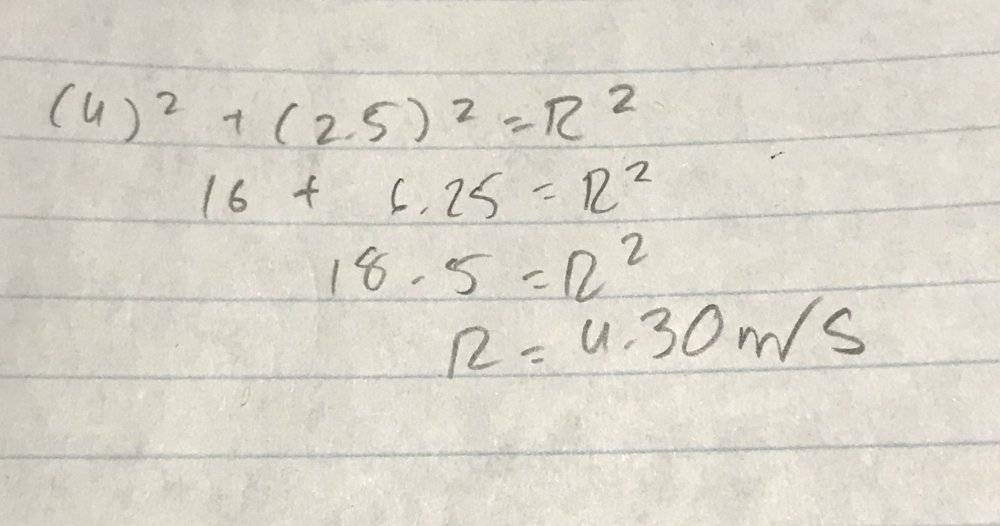 (4)² + (2.5)² = R²
16 + 6.25 = R²
18.5 = R²
R = 4.30 m/s